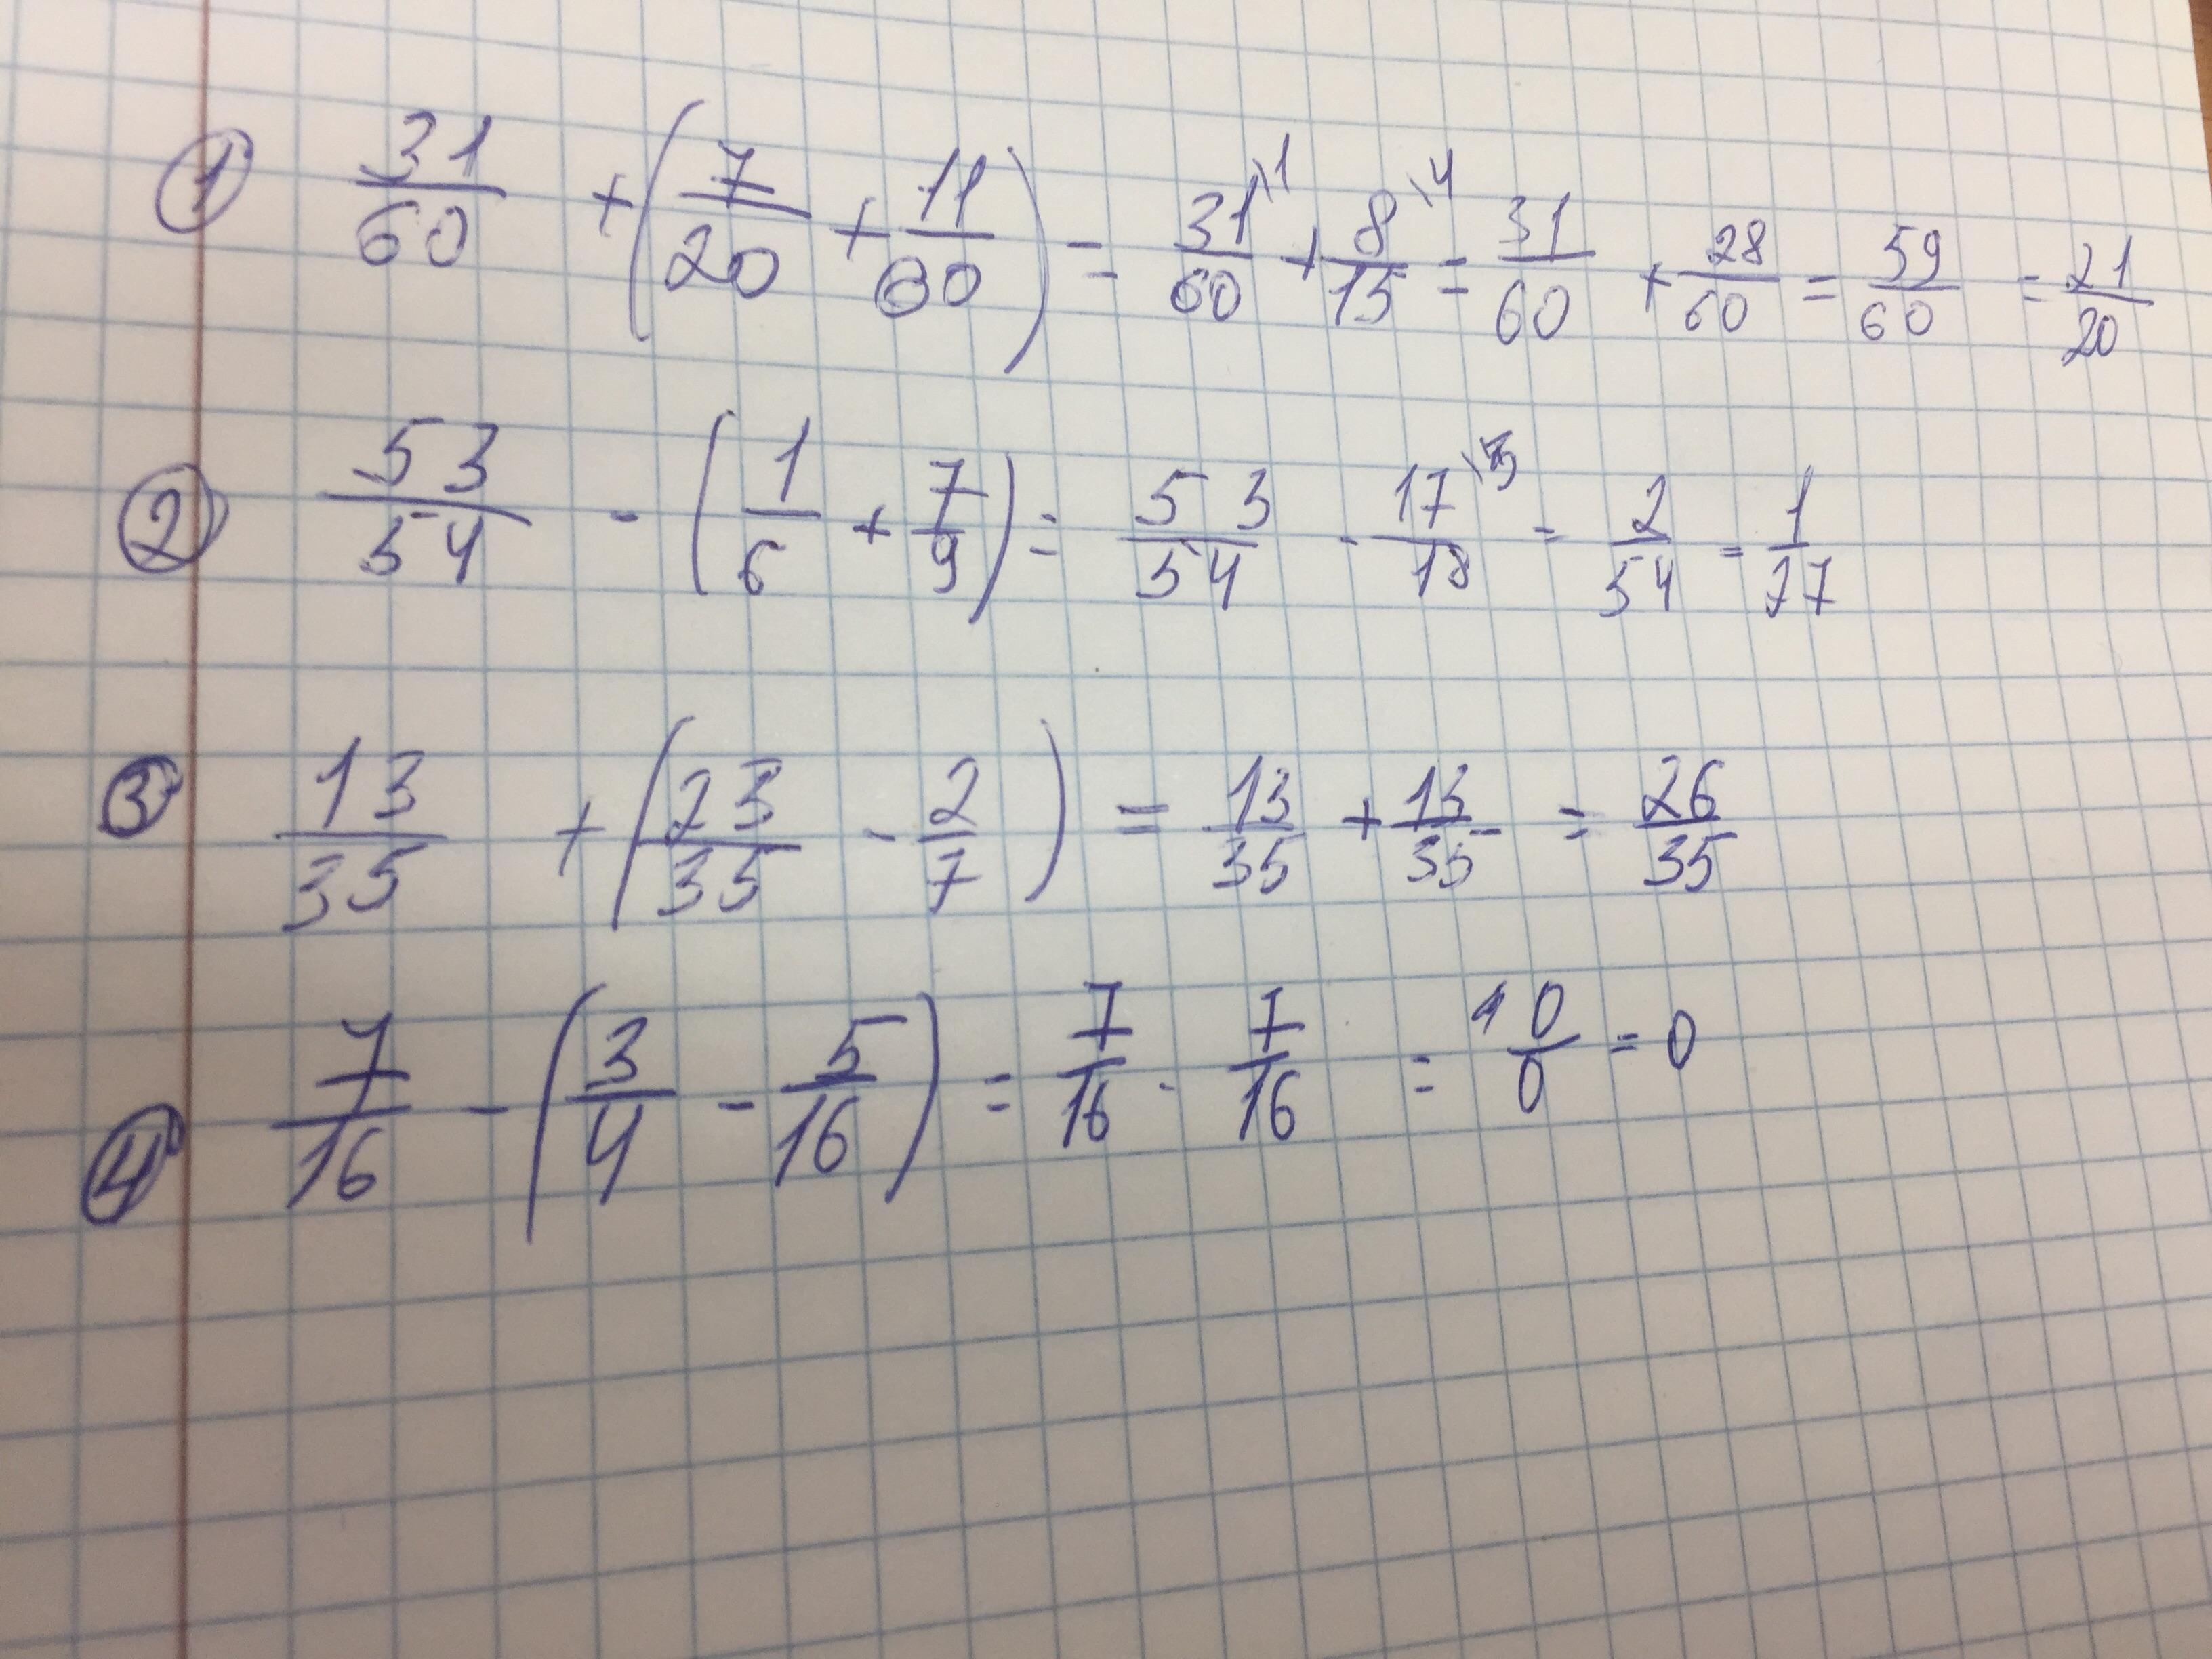 ① 31/60 + (7/20 + 11/60) = 31/60\1 + 8/15\4 = 31/60 + 28/60 = 59/60 = 21/20
② 53/54 - (1/6 + 7/9) = 53/54 - 17/18\3 = 2/54 = 1/27
③ 13/35 + (23/35 - 2/7) = 13/35 + 13/35 = 26/35
④ 7/16 - (3/4 - 5/16) = 7/16 - 7/16 = 0/0 = 0